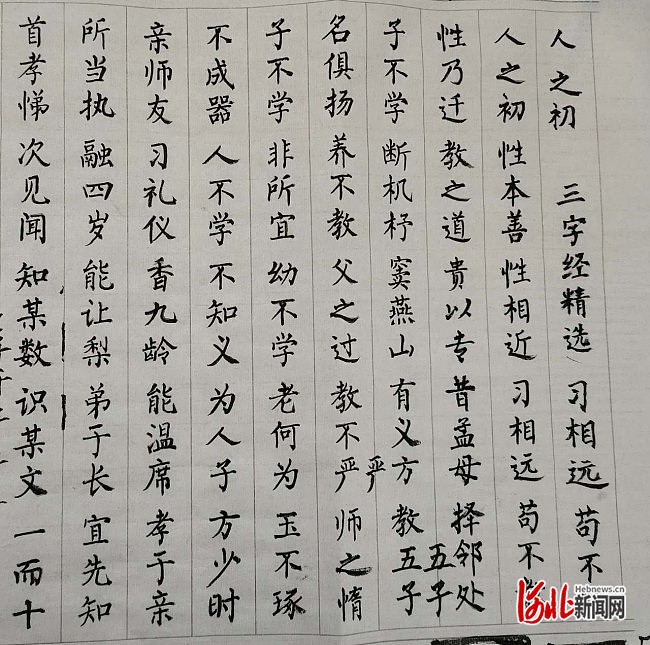 人之初 三字经精选 习相远 苟不
人之初 性本善 性相近 习相远 苟不
性乃迁 教之道 贵以专 昔孟母 择邻处
五子
子不学 断机杼 窦燕山 有义方 教五子
严
名俱扬 养不教 父之过 教不严 师之惰
子不学 非所宜 幼不学 老何为 玉不琢
不成器 人不学 不知义 为人子 方少时
亲师友 习礼仪 香九龄 能温席 孝于亲
所当执 融四岁 能让梨 弟于长 宜先知
首孝悌 次见闻 知某数 识某文 一而十
Hebnews.cn
河北新闻网